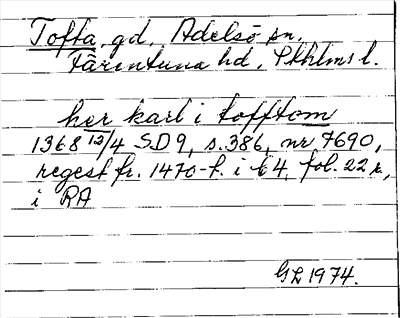 Tofta, gd, Adelsö sn,
Färentuna hd, Sthlms l.
her karl i tofftom
1368 12/4 SD 9, s. 386, nr 7690,
regest fr. 1470-t. i A 4, fol. 22 r,
i RA
GL 1974.